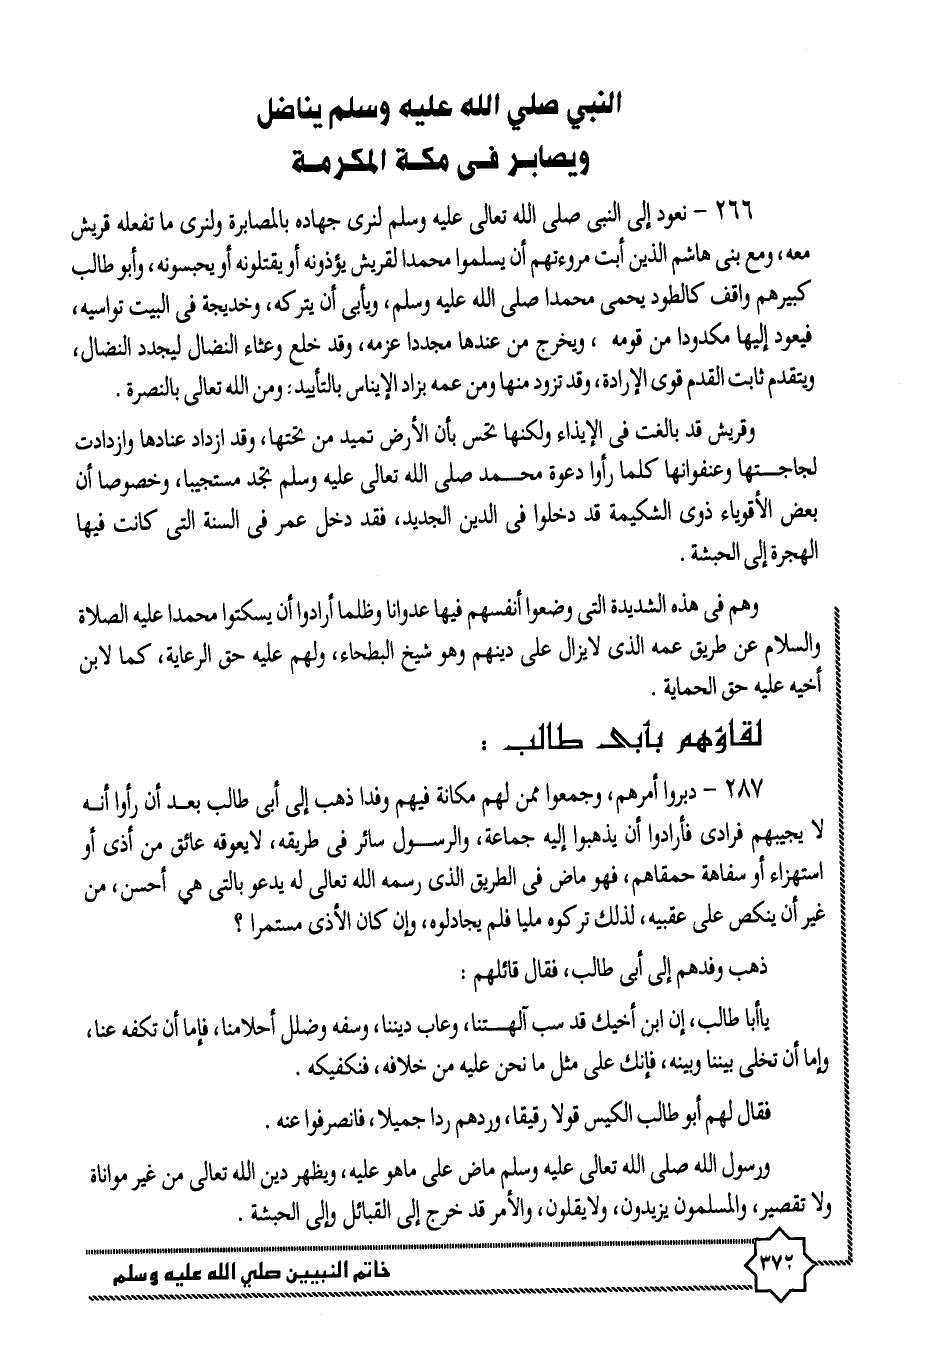 النبي صلي الله عليه وسلم يناضل
ويصابر فى مكة المكرمة
٢٦٦ – نعود إلى النبى صلى الله تعالى عليه وسلم لنرى جهاده بالمصابرة ولنرى ما تفعله قريش
معه، ومع بنى هاشم الذين أبت مروءتهم أن يسلموا محمدا لقريش يؤذونه أو يقتلونه أو يحبسونه، وأبو طالب
كبيرهم واقف كالطود يحمى محمدا صلى الله عليه وسلم، ويأبى أن يتركه، وخديجة فى البيت تواسيه،
فيعود إليها مكدودا من قومه ، ويخرج من عندها مجددا عزمه، وقد خلع وعثاء النضال ليجدد النضال،
ويتقدم ثابت القدم قوى الإرادة، وقد تزود منها ومن عمه بزاد الإيناس بالتأييد: ومن الله تعالى بالنصرة .
وقريش قد بالغت فى الإيذاء ولكنها تحس بأن الأرض تميد من تحتها، وقد ازداد عنادها وازدادت
لجاجتها وعنفوانها كلما رأوا دعوة محمد صلى الله تعالى عليه وسلم تجد مستجيبا، وخصوصا أن
بعض الأقوياء ذوى الشكيمة قد دخلوا فى الدين الجديد، فقد دخل عمر فى السنة التى كانت فيها
الهجرة إلى الحبشة .
وهم فى هذه الشديدة التى وضعوا أنفسهم فيها عدوانا وظلما أرادوا أن يسكتوا محمدا عليه الصلاة
والسلام عن طريق عمه الذى لايزال على دينهم وهو شيخ البطحاء، ولهم عليه حق الرعاية، كما لابن
أخيه عليه حق الحماية .
لقاؤهم بأبى طالب :
٢٨٧ – دبروا أمرهم، وجمعوا ممن لهم مكانة فيهم وفدا ذهب إلى أبى طالب بعد أن رأوا أنه
لا يجيبهم فرادى فأرادوا أن يذهبوا إليه جماعة، والرسول سائر فى طريقه، لايعوقه عائق من أذى أو
استهزاء أو سفاهة حمقاهم، فهو ماض فى الطريق الذى رسمه الله تعالى له يدعو بالتى هي أحسن، من
غير أن ينكص على عقبيه، لذلك تركوه مليا فلم يجادلوه، وإن كان الأذى مستمرا ؟
ذهب وفدهم إلى أبى طالب، فقال قائلهم :
ياأبا طالب، إن ابن أخيك قد سب آلهتنا، وعاب ديننا، وسفه وضلل أحلامنا، فإما أن تكفه عنا،
وإما أن تخلى بيننا وبينه، فإنك على مثل ما نحن عليه من خلافه، فنكفيكه .
فقال لهم أبو طالب الكيس قولا رقيقا، وردهم ردا جميلا، فانصرفوا عنه .
ورسول الله صلى الله تعالى عليه وسلم ماض على ماهو عليه، ويظهر دين الله تعالى من غير مواناة
ولا تقصير، والمسلمون يزيدون، ولايقلون، والأمر قد خرج إلى القبائل وإلى الحبشة .
٣٧٢
خاتم النبيين صلي الله عليه وسلم